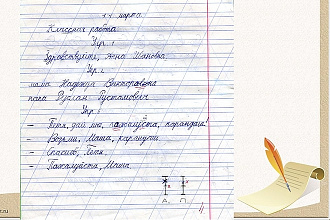 11 марта.
Классная работа
Упр. 1
Здравствуйте, Анна Ивановна
Упр. 2
мама Надежда Викторовна
папа Руслан Рустамович
Упр. 3
- Петя, дай мне, пожалуйста, карандаш!
- Возьми, Маша, карандаш.
- Спасибо, Петя.
- Пожалуйста, Маша.
Д. П.